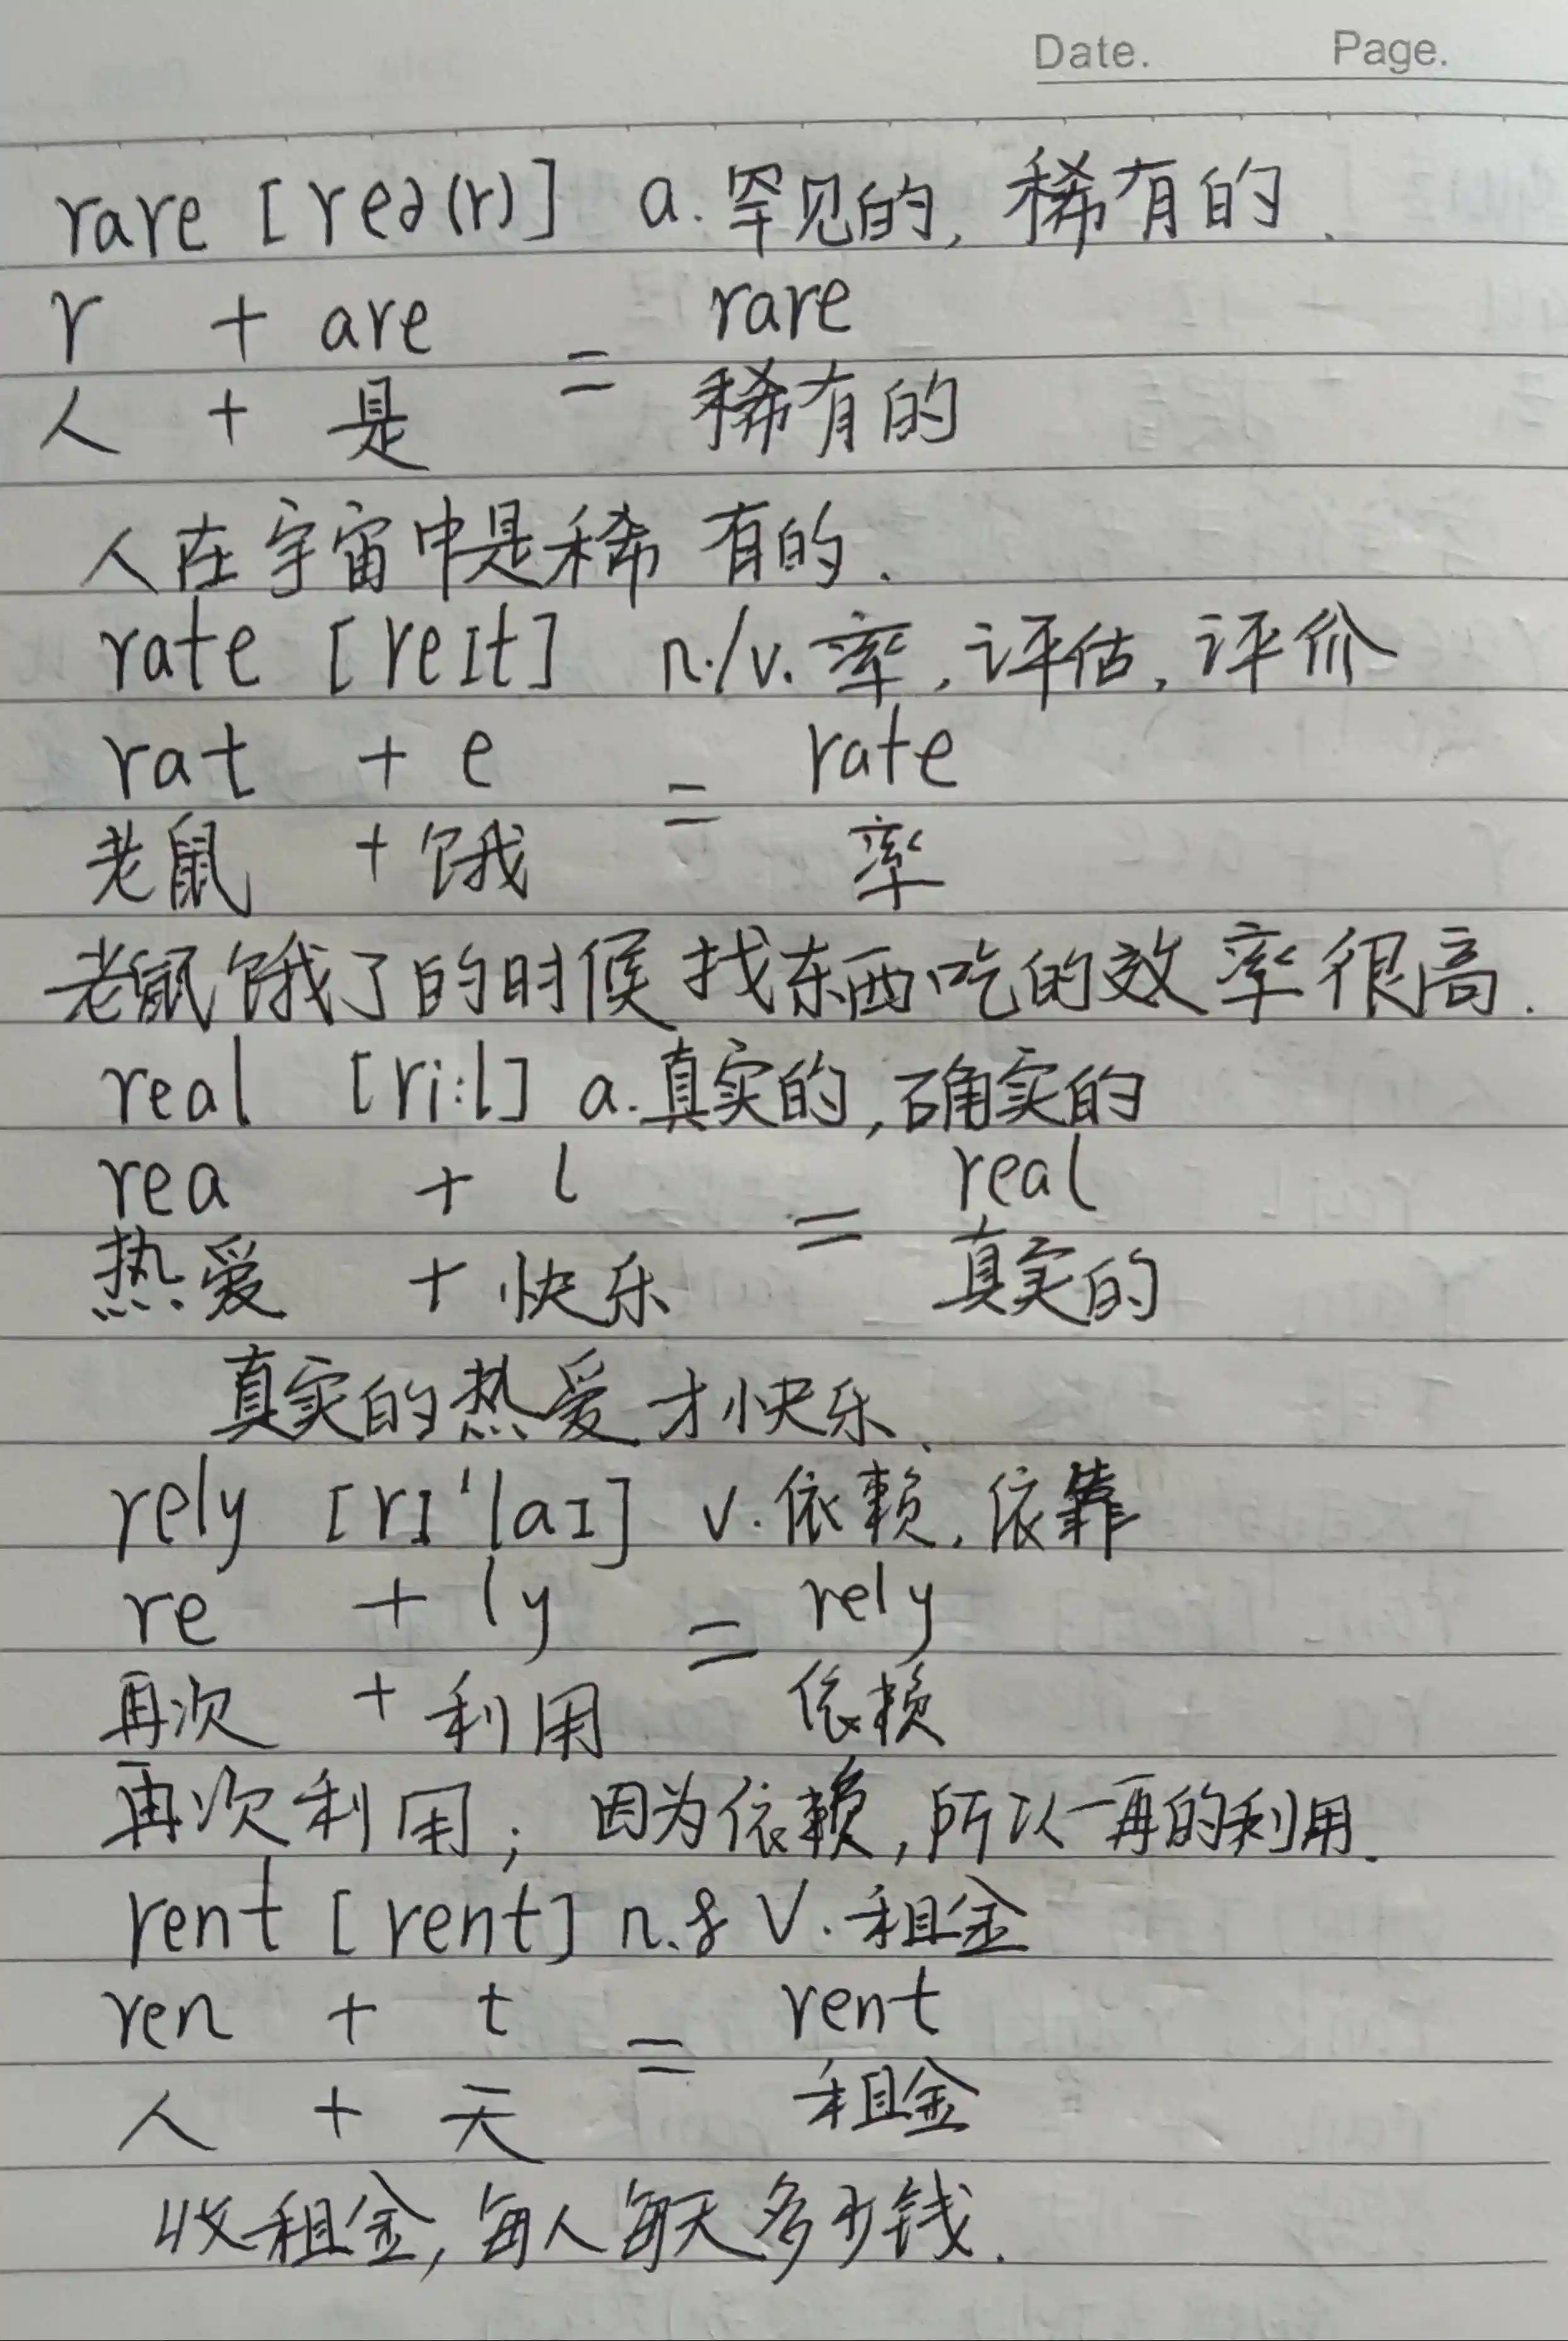 Date. Page.
rare [reə(r)] a. 罕见的, 稀有的.
r + are = rare
人 + 是 稀有的
人在宇宙中是稀有的.
rate [reɪt] n./v. 率, 评估, 评价
rat + e = rate
老鼠 + 饿 率
老鼠饿了的时候找东西吃的效率很高.
real [ri:l] a. 真实的, 确实的
rea + l = real
热爱 + 快乐 真实的
真实的热爱才快乐.
rely [rɪ'laɪ] v. 依赖, 依靠
re + ly = rely
再次 + 利用 依赖
再次利用; 因为依赖, 所以一再的利用.
rent [rent] n.& v. 租金
ren + t = rent
人 + 天 租金
收租金, 每人每天多少钱.